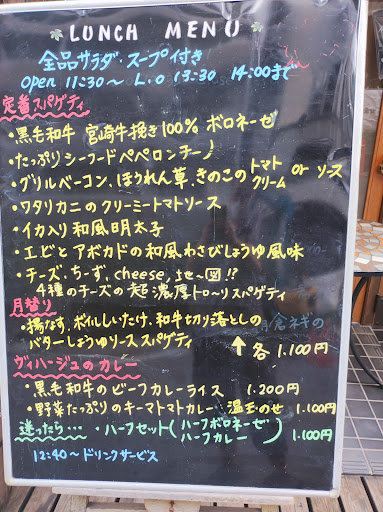 LUNCH MENU
全品サラダ・スープ付き
open 11:30〜 L.O 13:30 14:00まで
定番スパゲティ
・黒毛和牛 宮崎牛挽き100% ボロネーゼ
・たっぷりシーフードペペロンチーノ
・グリルベーコン、ほうれん草、きのこのトマトクリーム or ソース
・ワタリカニのクリーミートマトソース
・イカ入り和風明太子
・エビとアボカドの和風わさびしょうゆ風味
・チーズ、ちーず、cheese,
4種のチーズの超濃厚トロ〜リスパゲティ
月替り
・揚なす、ポルしいたけ、和牛切り落としの 倉ネギの
バターしょうゆソーススパゲティ ↑各 1.100円
ヴィハージュのカレー
・黒毛和牛のビーフカレーライス 1.200円
・野菜たっぷりのキーマトマトカレー 温玉のせ 1.100円
迷ったら… ・ハーフセット(ハーフボロネーゼ
ハーフカレー) 1.100円
12:40〜ドリンクサービス